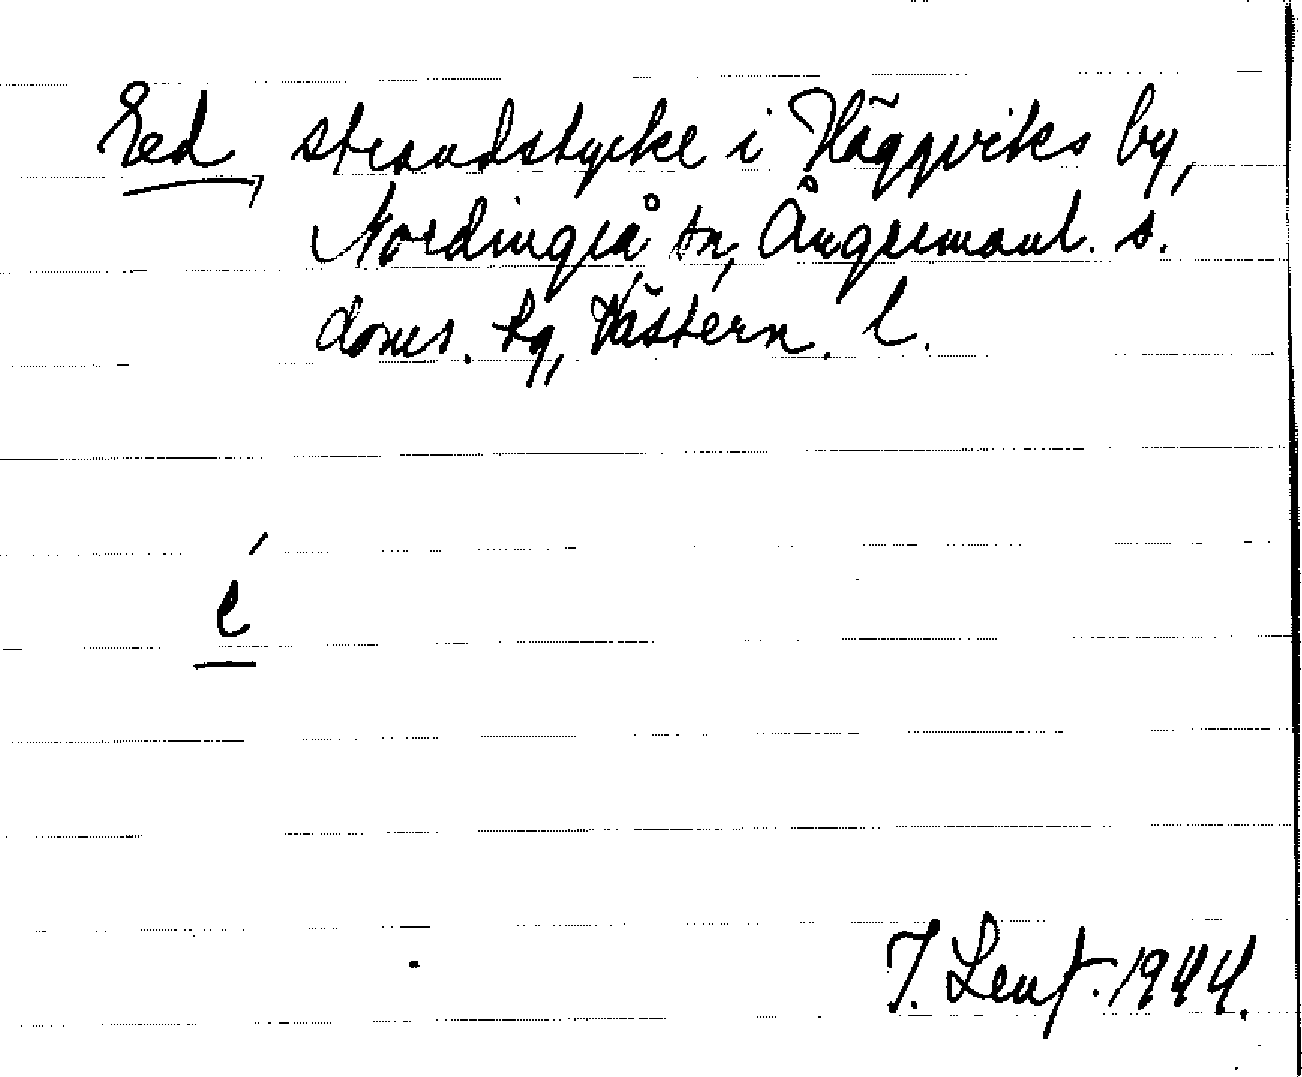 Eed, strandstycke i Häggviks by,
Nordingrå sn, Ångermanl. s.
doms. hg, Västern. l.
é
J. Lenf. 1944.